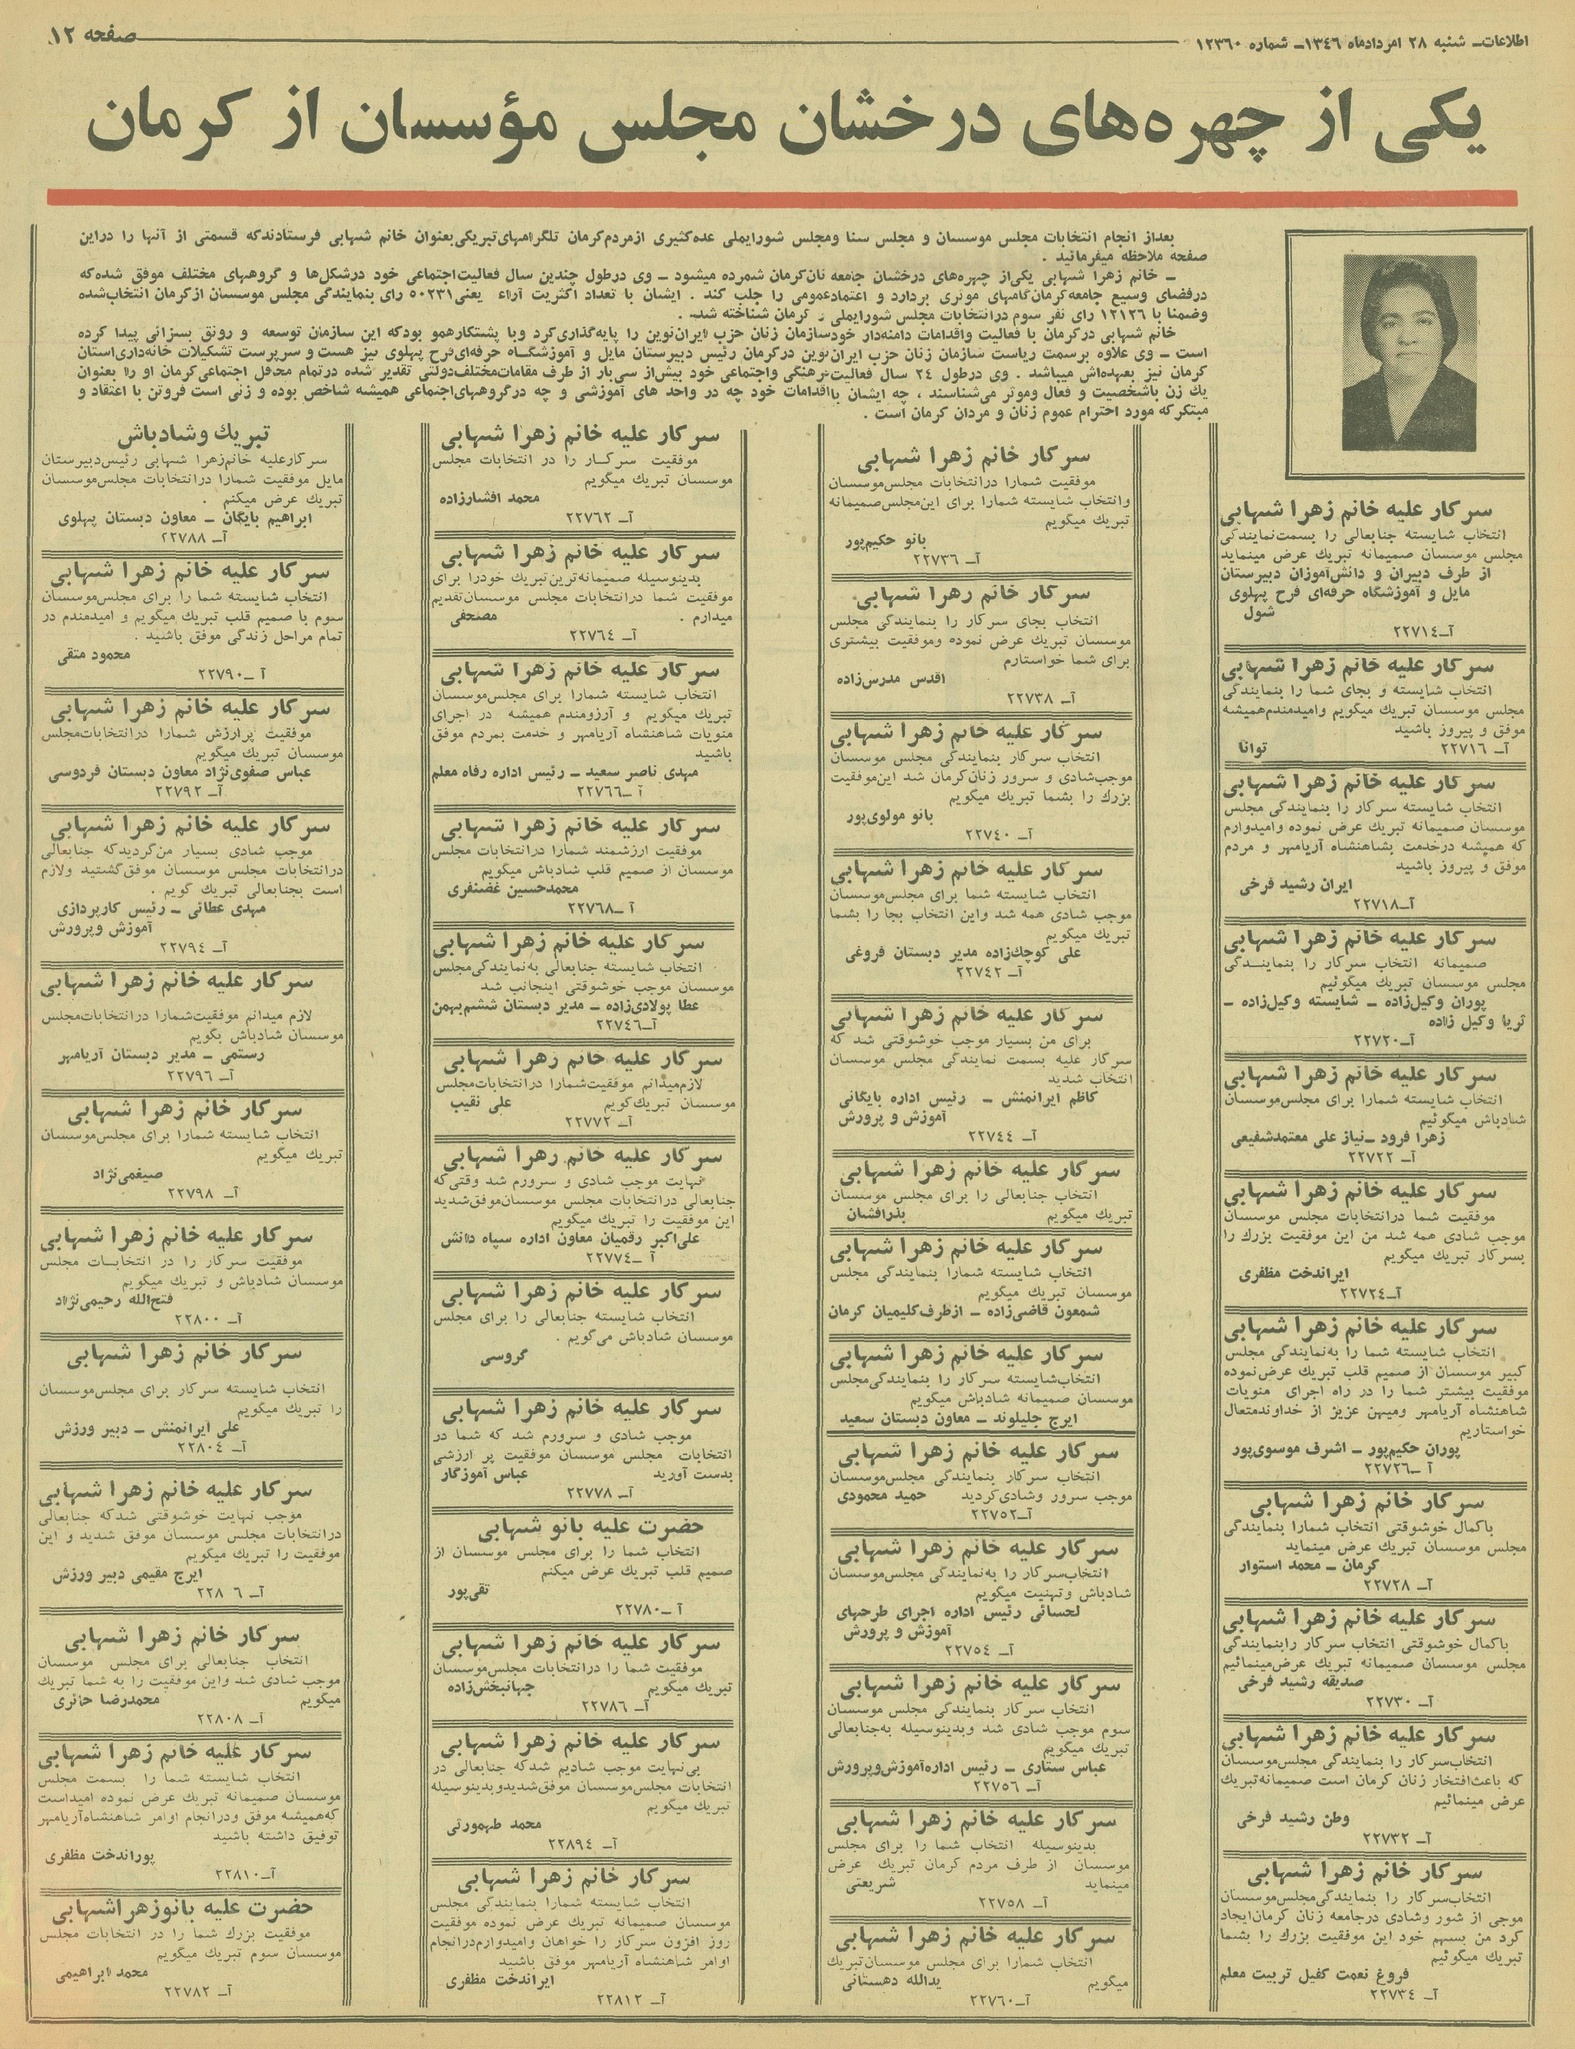 اطلاعات ـ شنبه ۲۸ امردادماه ۱۳٤٦ ـ شماره ۱۲۳٦۰
صفحه ۱۲
یکی از چهره‌های درخشان مجلس مؤسسان از کرمان
بعداز انجام انتخابات مجلس موسسان و مجلس سنا ومجلس شورایملی عده‌کثیری ازمردم‌کرمان تلگرامهای‌تبریکی‌بعنوان خانم شهابی فرستادندکه قسمتی از آنها را دراین
صفحه ملاحظه میفرمائید .
ـ خانم زهرا شهابی یکی‌از چهره‌های درخشان جامعه نان‌کرمان شمرده میشود ـ وی درطول چندین سال فعالیت‌اجتماعی خود درشکل‌ها و گروههای مختلف موفق شده‌که
درفضای وسیع جامعه‌کرمان‌گامهای موثری بردارد و اعتمادعمومی را جلب کند . ایشان با تعداد اکثریت آراء یعنی ۵۰۲۳۱ رای بنمایندگی مجلس موسسان ازکرمان انتخاب‌شده
وضمنا با ۱۲۱۲٦ رای نفر سوم درانتخابات مجلس شورایملی ز کرمان شناخته شد .
خانم شهابی درکرمان با فعالیت واقدامات دامنه‌دار خودسازمان زنان حزب ایران‌نوین را پایه‌گذاری‌کرد وبا پشتکارهمو بودکه این سازمان توسعه و رونق بسزائی پیدا کرده
است ـ وی علاوه برسمت ریاست سازمان زنان حزب ایران‌نوین درکرمان رئیس دبیرستان مایل و آموزشگاه حرفه‌ای‌فرح پهلوی نیز هست و سرپرست تشکیلات خانه‌داری‌استان
کرمان نیز بعهده‌اش میباشد . وی درطول ۲٤ سال فعالیت‌فرهنگی واجتماعی خود بیش‌از سی‌بار از طرف مقامات‌مختلف‌دولتی تقدیر شده درتمام محافل اجتماعی‌کرمان او را بعنوان
یك زن باشخصیت و فعال وموثر می‌شناسند ، چه ایشان بااقدامات خود چه در واحد های آموزشی و چه درگروههای‌اجتماعی همیشه شاخص بوده و زنی است فروتن با اعتقاد و
مبتکرکه مورد احترام عموم زنان و مردان کرمان است .
سرکار علیه خانم زهرا شهابی
انتخاب شایسته جنابعالی را بسمت‌نمایندگی
مجلس موسسان صمیمانه تبریك عرض مینماید
از طرف دبیران و دانش‌آموزان دبیرستان
مایل و آموزشگاه حرفه‌ای فرح پهلوی
شول
آـ ۲۲۷۱٤
سرکار علیه خانم زهرا شهابی
انتخاب شایسته و بجای شما را بنمایندگی
مجلس موسسان تبریك میگویم وامیدمندم‌همیشه
موفق و پیروز باشید
آـ ۲۲۷۱٦ توانا
سرکار علیه خانم زهرا شهابی
انتخاب شایسته سرکار را بنمایندگی مجلس
موسسان صمیمانه تبریك عرض نموده وامیدوارم
که همیشه درخدمت بشاهنشاه آریامهر و مردم
موفق و پیروز باشید
ایران رشید فرخی
آـ ۲۲۷۱۸
سرکار علیه خانم زهرا شهابی
صمیمانه انتخاب سرکار را بنمایندگی
مجلس موسسان تبریك میگوئیم
پوران وکیل‌زاده ـ شایسته وکیل‌زاده ـ
ثریا وکیل زاده
آـ ۲۲۷۲۰
سرکار علیه خانم زهرا شهابی
انتخاب شایسته شمارا برای مجلس‌موسسان
شادباش میگوئیم
زهرا فرود ـ نیاز علی معتمدشفیعی
آـ ۲۲۷۲۲
سرکار علیه خانم زهرا شهابی
موفقیت شما درانتخابات مجلس موسسان
موجب شادی همه شد من این موفقیت بزرك را
بسرکار تبریك میگویم
ایراندخت مظفری
آـ ۲۲۷۲٤
سرکار علیه خانم زهرا شهابی
انتخاب شایسته شما را به‌نمایندگی مجلس
کبیر موسسان از صمیم قلب تبریك عرض‌نموده
موفقیت بیشتر شما را در راه اجرای منویات
شاهنشاه آریامهر ومیهن عزیز از خداوندمتعال
خواستاریم
پوران حکیم‌پور ـ اشرف موسوی‌پور
آ ـ ۲۲۷۲٦
سرکار خانم زهرا شهابی
باکمال خوشوقتی انتخاب شمارا بنمایندگی
مجلس موسسان تبریك عرض مینماید
کرمان ـ محمد استوار
آـ ۲۲۷۲۸
سرکار علیه خانم زهرا شهابی
باکمال خوشوقتی انتخاب سرکار رابنمایندگی
مجلس موسسان صمیمانه تبریك عرض‌مینمائیم
صدیقه رشید فرخی
آـ ۲۲۷۳۰
سرکار علیه خانم زهرا شهابی
انتخاب‌سرکار را بنمایندگی مجلس‌موسسان
که باعث‌افتخار زنان کرمان است صمیمانه‌تبریك
عرض مینمائیم
وطن رشید فرخی
آـ ۲۲۷۳۲
سرکار خانم زهرا شهابی
انتخاب‌سرکار را بنمایندگی‌مجلس‌موسسان
موجی از شور وشادی درجامعه زنان کرمان‌ایجاد
کرد من بسهم خود این موفقیت بزرك را بشما
تبریك میگوئیم
فروغ نعمت کفیل تربیت معلم
آـ ۲۲۷۳٤
سرکار خانم زهرا شهابی
موفقیت شمارا درانتخابات مجلس‌موسسان
وانتخاب شایسته شمارا برای این‌مجلس‌صمیمانه
تبریك میگویم
بانو حکیم‌پور
آـ ۲۲۷۳٦
سرکار خانم زهرا شهابی
انتخاب بجای سرکار را بنمایندگی مجلس
موسسان تبریك عرض نموده وموفقیت بیشتری
برای شما خواستارم
اقدس مدرس‌زاده
آـ ۲۲۷۳۸
سرکار علیه خانم زهرا شهابی
انتخاب سرکار بنمایندگی مجلس موسسان
موجب‌شادی و سرور زنان‌کرمان شد این‌موفقیت
بزرك را بشما تبریك میگویم
بانو مولوی‌پور
آـ ۲۲۷٤۰
سرکار علیه خانم زهرا شهابی
انتخاب شایسته شما برای مجلس‌موسسان
موجب شادی همه شد واین انتخاب بجا را بشما
تبریك میگویم
علی کوچك‌زاده مدیر دبستان فروغی
آـ ۲۲۷٤۲
سرکار علیه خانم زهرا شهابی
برای من بسیار موجب خوشوقتی شد که
سرکار علیه بسمت نمایندگی مجلس موسسان
انتخاب شدید
کاظم ایرانمنش ـ رئیس اداره بایگانی
آموزش و پرورش
آـ ۲۲۷٤٤
سرکار علیه خانم زهرا شهابی
انتخاب جنابعالی را برای مجلس موسسان
تبریك میگویم بذرافشان
سرکار علیه خانم زهرا شهابی
انتخاب شایسته شمارا بنمایندگی مجلس
موسسان تبریك میگویم
شمعون قاضی‌زاده ـ ازطرف‌کلیمیان کرمان
سرکار علیه خانم زهرا شهابی
انتخاب‌شایسته سرکار را بنمایندگی‌مجلس
موسسان صمیمانه شادباش میگویم
ایرج جلیلوند ـ معاون دبستان سعید
سرکار علیه خانم زهرا شهابی
انتخاب سرکار بنمایندگی مجلس‌موسسان
موجب سرور وشادی‌کردید حمید محمودی
آـ ۲۲۷۵۲
سرکار علیه خانم زهرا شهابی
انتخاب‌سرکار را به‌نمایندگی مجلس‌موسسان
شادباش وتهنیت میگویم
لحسائی رئیس اداره اجرای طرحهای
آموزش و پرورش
آـ ۲۲۷۵٤
سرکار علیه خانم زهرا شهابی
انتخاب سرکار بنمایندگی مجلس موسسان
سوم موجب شادی شد وبدینوسیله به‌جنابعالی
تبریك میگویم
عباس ستاری ـ رئیس اداره‌آموزش‌وپرورش
آـ ۲۲۷۵٦
سرکار علیه خانم زهرا شهابی
بدینوسیله انتخاب شما را برای مجلس
موسسان از طرف مردم کرمان تبریك عرض
مینماید شریعتی
آـ ۲۲۷۵۸
سرکار علیه خانم زهرا شهابی
انتخاب شمارا برای مجلس موسسان‌تبریك
میگویم یدالله دهستانی
آـ ۲۲۷٦۰
سرکار علیه خانم زهرا شهابی
موفقیت سرکار را در انتخابات مجلس
موسسان تبریك میگویم
محمد افشارزاده
آـ ۲۲۷٦۲
سرکار علیه خانم زهرا شهابی
بدینوسیله صمیمانه‌ترین‌تبریك خودرا برای
موفقیت شما درانتخابات مجلس موسسان‌تقدیم
میدارم . مصحفی
آـ ۲۲۷٦٤
سرکار علیه خانم زهرا شهابی
انتخاب شایسته شمارا برای مجلس‌موسسان
تبریك میگویم و آرزومندم همیشه در اجرای
منویات شاهنشاه آریامهر و خدمت بمردم موفق
باشید
مهدی ناصر سعید ـ رئیس اداره رفاه معلم
آـ ۲۲۷٦٦
سرکار علیه خانم زهرا شهابی
موفقیت ارزشمند شمارا درانتخابات مجلس
موسسان از صمیم قلب شادباش میگویم
محمدحسین غضنفری
آـ ۲۲۷٦۸
سرکار علیه خانم زهرا شهابی
انتخاب شایسته جنابعالی به‌نمایندگی‌مجلس
موسسان موجب خوشوقتی اینجانب شد
عطا پولادی‌زاده ـ مدیر دبستان ششم‌بهمن
آـ ۲۲۷٤٦
سرکار علیه خانم زهرا شهابی
لازم‌میدانم موفقیت‌شمارا درانتخابات‌مجلس
موسسان تبریك‌گویم علی نقیب
آـ ۲۲۷۷۲
سرکار علیه خانم زهرا شهابی
نهایت موجب شادی و سرورم شد وقتی‌که
جنابعالی درانتخابات مجلس موسسان‌موفق‌شدید
این موفقیت را تبریك میگویم
علی‌اکبر رقمیان معاون اداره سپاه دانش
آـ ۲۲۷۷٤
سرکار علیه خانم زهرا شهابی
انتخاب شایسته جنابعالی را برای مجلس
موسسان شادباش می‌گویم .
گروسی
سرکار علیه خانم زهرا شهابی
موجب شادی و سرورم شد که شما در
انتخابات مجلس موسسان موفقیت پر ارزشی
بدست آورید عباس آموزگار
آـ ۲۲۷۷۸
حضرت علیه بانو شهابی
انتخاب شما را برای مجلس موسسان از
صمیم قلب تبریك عرض میکنم
تقی‌پور
آـ ۲۲۷۸۰
سرکار علیه خانم زهرا شهابی
موفقیت شما را درانتخابات مجلس‌موسسان
تبریك میگویم جهانبخش‌زاده
آـ ۲۲۷۸٦
سرکار علیه خانم زهرا شهابی
بی‌نهایت موجب شادیم شدکه جنابعالی در
انتخابات مجلس‌موسسان موفق‌شدیدوبدینوسیله
تبریك میگویم
محمد طهمورثی
آـ ۲۲۸۹٤
سرکار خانم زهرا شهابی
انتخاب شایسته شمارا بنمایندگی مجلس
موسسان صمیمانه تبریك عرض نموده موفقیت
روز افزون سرکار را خواهان وامیدوارم‌درانجام
اوامر شاهنشاه آریامهر موفق باشید
ایراندخت مظفری
آـ ۲۲۸۱۲
تبریك وشادباش
سرکارعلیه خانم‌زهرا شهابی رئیس‌دبیرستان
مایل موفقیت شمارا درانتخابات مجلس‌موسسان
تبریك عرض میکنم .
ابراهیم بایگان ـ معاون دبستان پهلوی
آـ ۲۲۷۸۸
سرکار علیه خانم زهرا شهابی
انتخاب شایسته شما را برای مجلس‌موسسان
سوم با صمیم قلب تبریك میگویم و امیدمندم در
تمام مراحل زندگی موفق باشید .
محمود متقی
آـ ۲۲۷۹۰
سرکار علیه خانم زهرا شهابی
موفقیت پرارزش شمارا درانتخابات‌مجلس
موسسان تبریك میگویم
عباس صفوی‌نژاد معاون دبستان فردوسی
آـ ۲۲۷۹۲
سرکار علیه خانم زهرا شهابی
موجب شادی بسیار من‌گردیدکه جنابعالی
درانتخابات مجلس موسسان موفق‌گشتید ولازم
است بجنابعالی تبریك گویم .
مهدی عطائی ـ رئیس کارپردازی
آموزش وپرورش
آـ ۲۲۷۹٤
سرکار علیه خانم زهرا شهابی
لازم میدانم موفقیت‌شمارا درانتخابات‌مجلس
موسسان شادباش بگویم
رستمی ـ مدیر دبستان آریامهر
آـ ۲۲۷۹٦
سرکار خانم زهرا شهابی
انتخاب شایسته شمارا برای مجلس‌موسسان
تبریك میگویم
صیغمی‌نژاد
آـ ۲۲۷۹۸
سرکار علیه خانم زهرا شهابی
موفقیت سرکار را در انتخابات مجلس
موسسان شادباش و تبریك میگویم
فتح‌الله رحیمی‌نژاد
آـ ۲۲۸۰۰
سرکار خانم زهرا شهابی
انتخاب شایسته سرکار برای مجلس‌موسسان
را تبریك میگویم
علی ایرانمنش ـ دبیر ورزش
آـ ۲۲۸۰٤
سرکار علیه خانم زهرا شهابی
موجب نهایت خوشوقتی شدکه جنابعالی
درانتخابات مجلس موسسان موفق شدید و این
موفقیت را تبریك میگویم
ایرج مقیمی دبیر ورزش
آـ ۲۲۸۰٦
سرکار خانم زهرا شهابی
انتخاب جنابعالی برای مجلس موسسان
موجب شادی شد واین موفقیت را به شما تبریك
میگویم محمدرضا حائری
آـ ۲۲۸۰۸
سرکار علیه خانم زهرا شهابی
انتخاب شایسته شما را بسمت مجلس
موسسان صمیمانه تبریك عرض نموده امیداست
که‌همیشه موفق ودرانجام اوامر شاهنشاه‌آریامهر
توفیق داشته باشید
پوراندخت مظفری
آـ ۲۲۸۱۰
حضرت علیه بانوزهراشهابی
موفقیت بزرك شما را در انتخابات مجلس
موسسان سوم تبریك میگویم
محمد ابراهیمی
آـ ۲۲۷۸۲